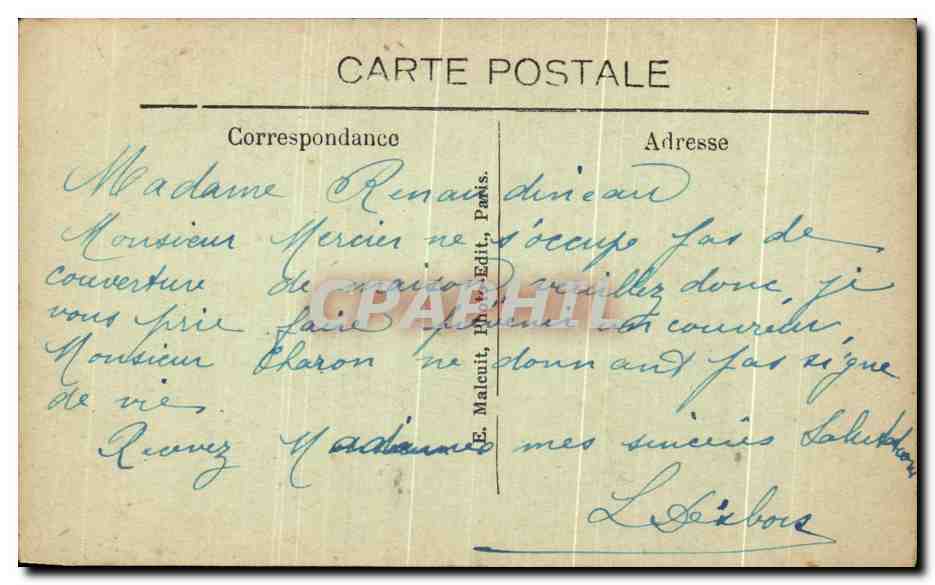 CARTE POSTALE
Correspondance
Adresse
Madame Renaudineau
Monsieur Mercier ne s'occupe pas de
couverture de maison veuillez donc, je
vous prie faire prévenir un couvreur
Monsieur Charon ne donnant pas signe
de vie.
Recevez Madame mes sincères Salutations
L Desbois
E. Malcuit, Phot.-Edit., Paris.
CPAPHIL